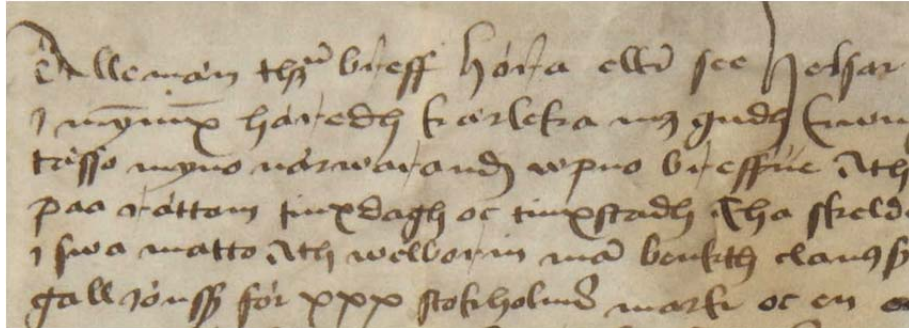 Alle män th̄ breff höra ellr̄ see helsar
i haredh kärleka mȝ gudh
mino närwarandȝ vpno breffue Ath
paa rättom tinxdagh oc tinxstadh Tha skeld
i swa matto Ath welborin mā benkth clauss
gall jönss för xxx stokholms mark oc en